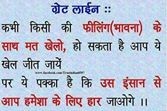 ग्रेट लाईन ::
कभी किसी की फीलिंग(भावना) के
साथ मत खेलो, हो सकता है आप ये
खेल जीत जायें
पर ये पक्का है कि उस इंसान से
आप हमेशा के लिए हार जाओगे ।।